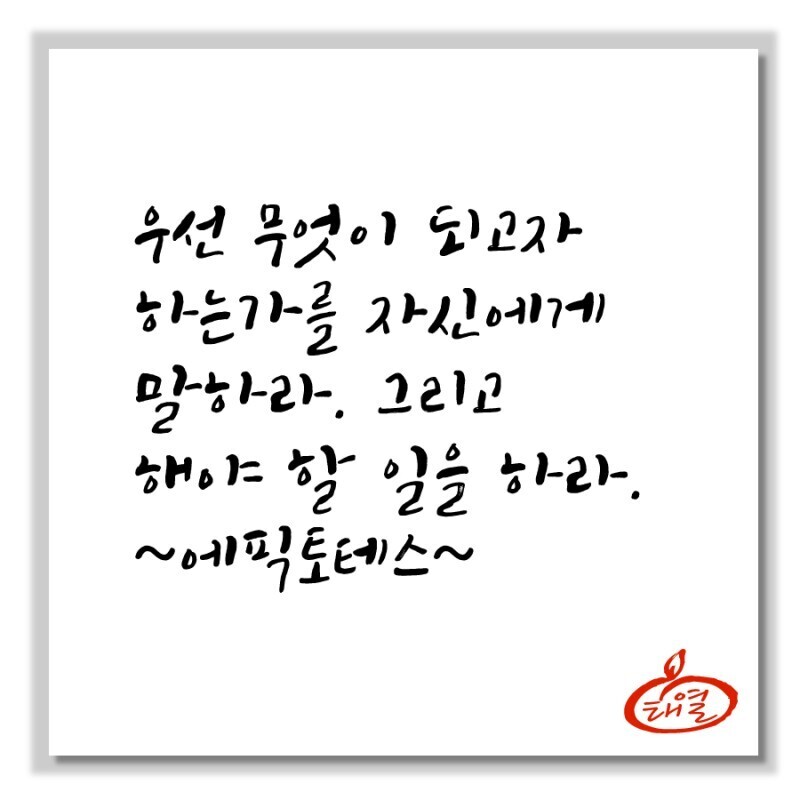 우선 무엇이 되고자
하는가를 자신에게
말하라. 그리고
해야 할 일을 하라.
~에픽토테스~
태열